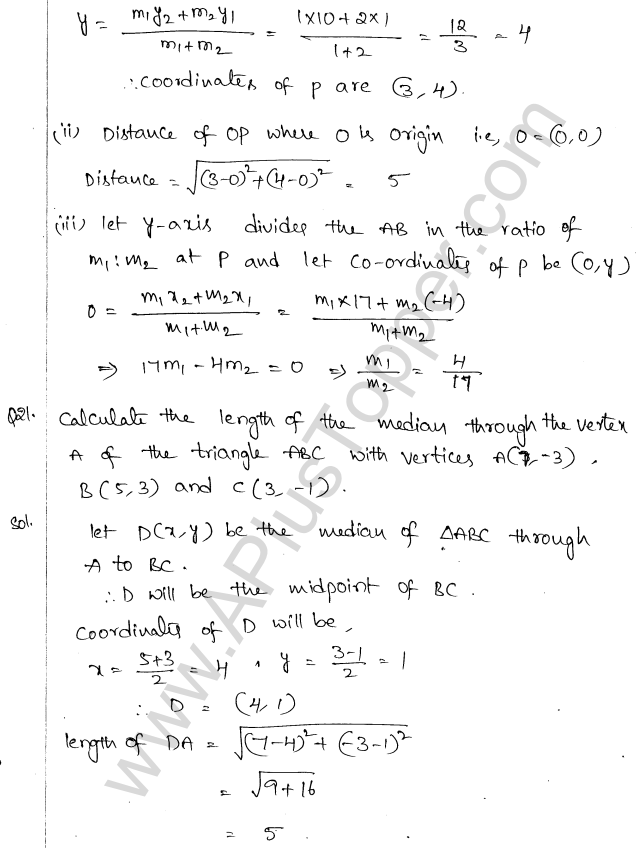 y = m₁y₂+m₂y₁ / m₁+m₂ = 1×10+2×1 / 1+2 = 12/3 = 4
∴ coordinates of p are (3,4).
(ii) Distance of OP where O is origin i.e, O=(0,0)
Distance = √(3-0)²+(4-0)² = 5
(iii) let y-axis divides the AB in the ratio of
m₁:m₂ at P and let co-ordinates of p be (0,y)
0 = m₁x₂+m₂x₁ / m₁+m₂ = m₁×17+m₂(-4) / m₁+m₂
⇒ 17m₁-4m₂=0 ⇒ m₁/m₂ = 4/17
Q21. Calculate the length of the median through the vertex
A of the triangle ABC with vertices A(7,-3),
B(5,3) and C(3,-1).
Sol. let D(x,y) be the median of △ABC through
A to BC.
∴ D will be the midpoint of BC.
Coordinates of D will be,
x = 5+3/2 = 4, y = 3-1/2 = 1
∴ D = (4,1)
length of DA = √(7-4)²+(-3-1)²
= √9+16
= 5.
www.APlusTopper.com